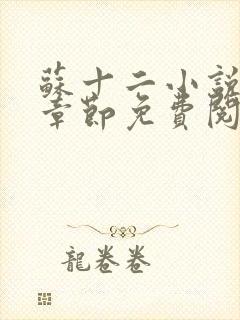 蘇十二小説
章節免費閱
龍卷卷